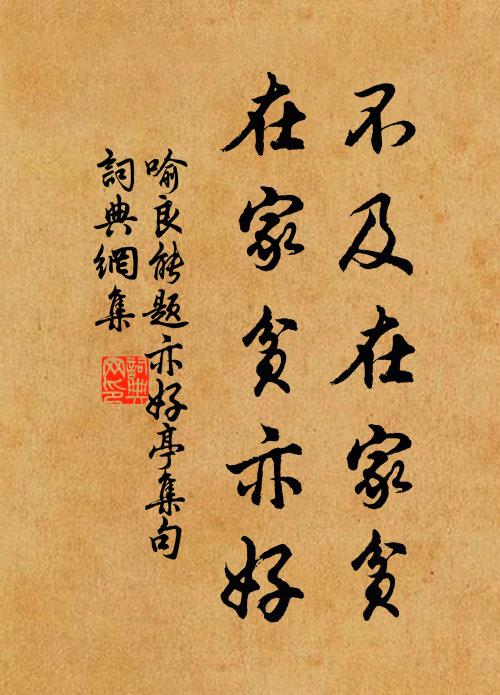 不及在家貧
在家貧亦好
喻良能題亦好亭集句
詞典網集
詞典網印